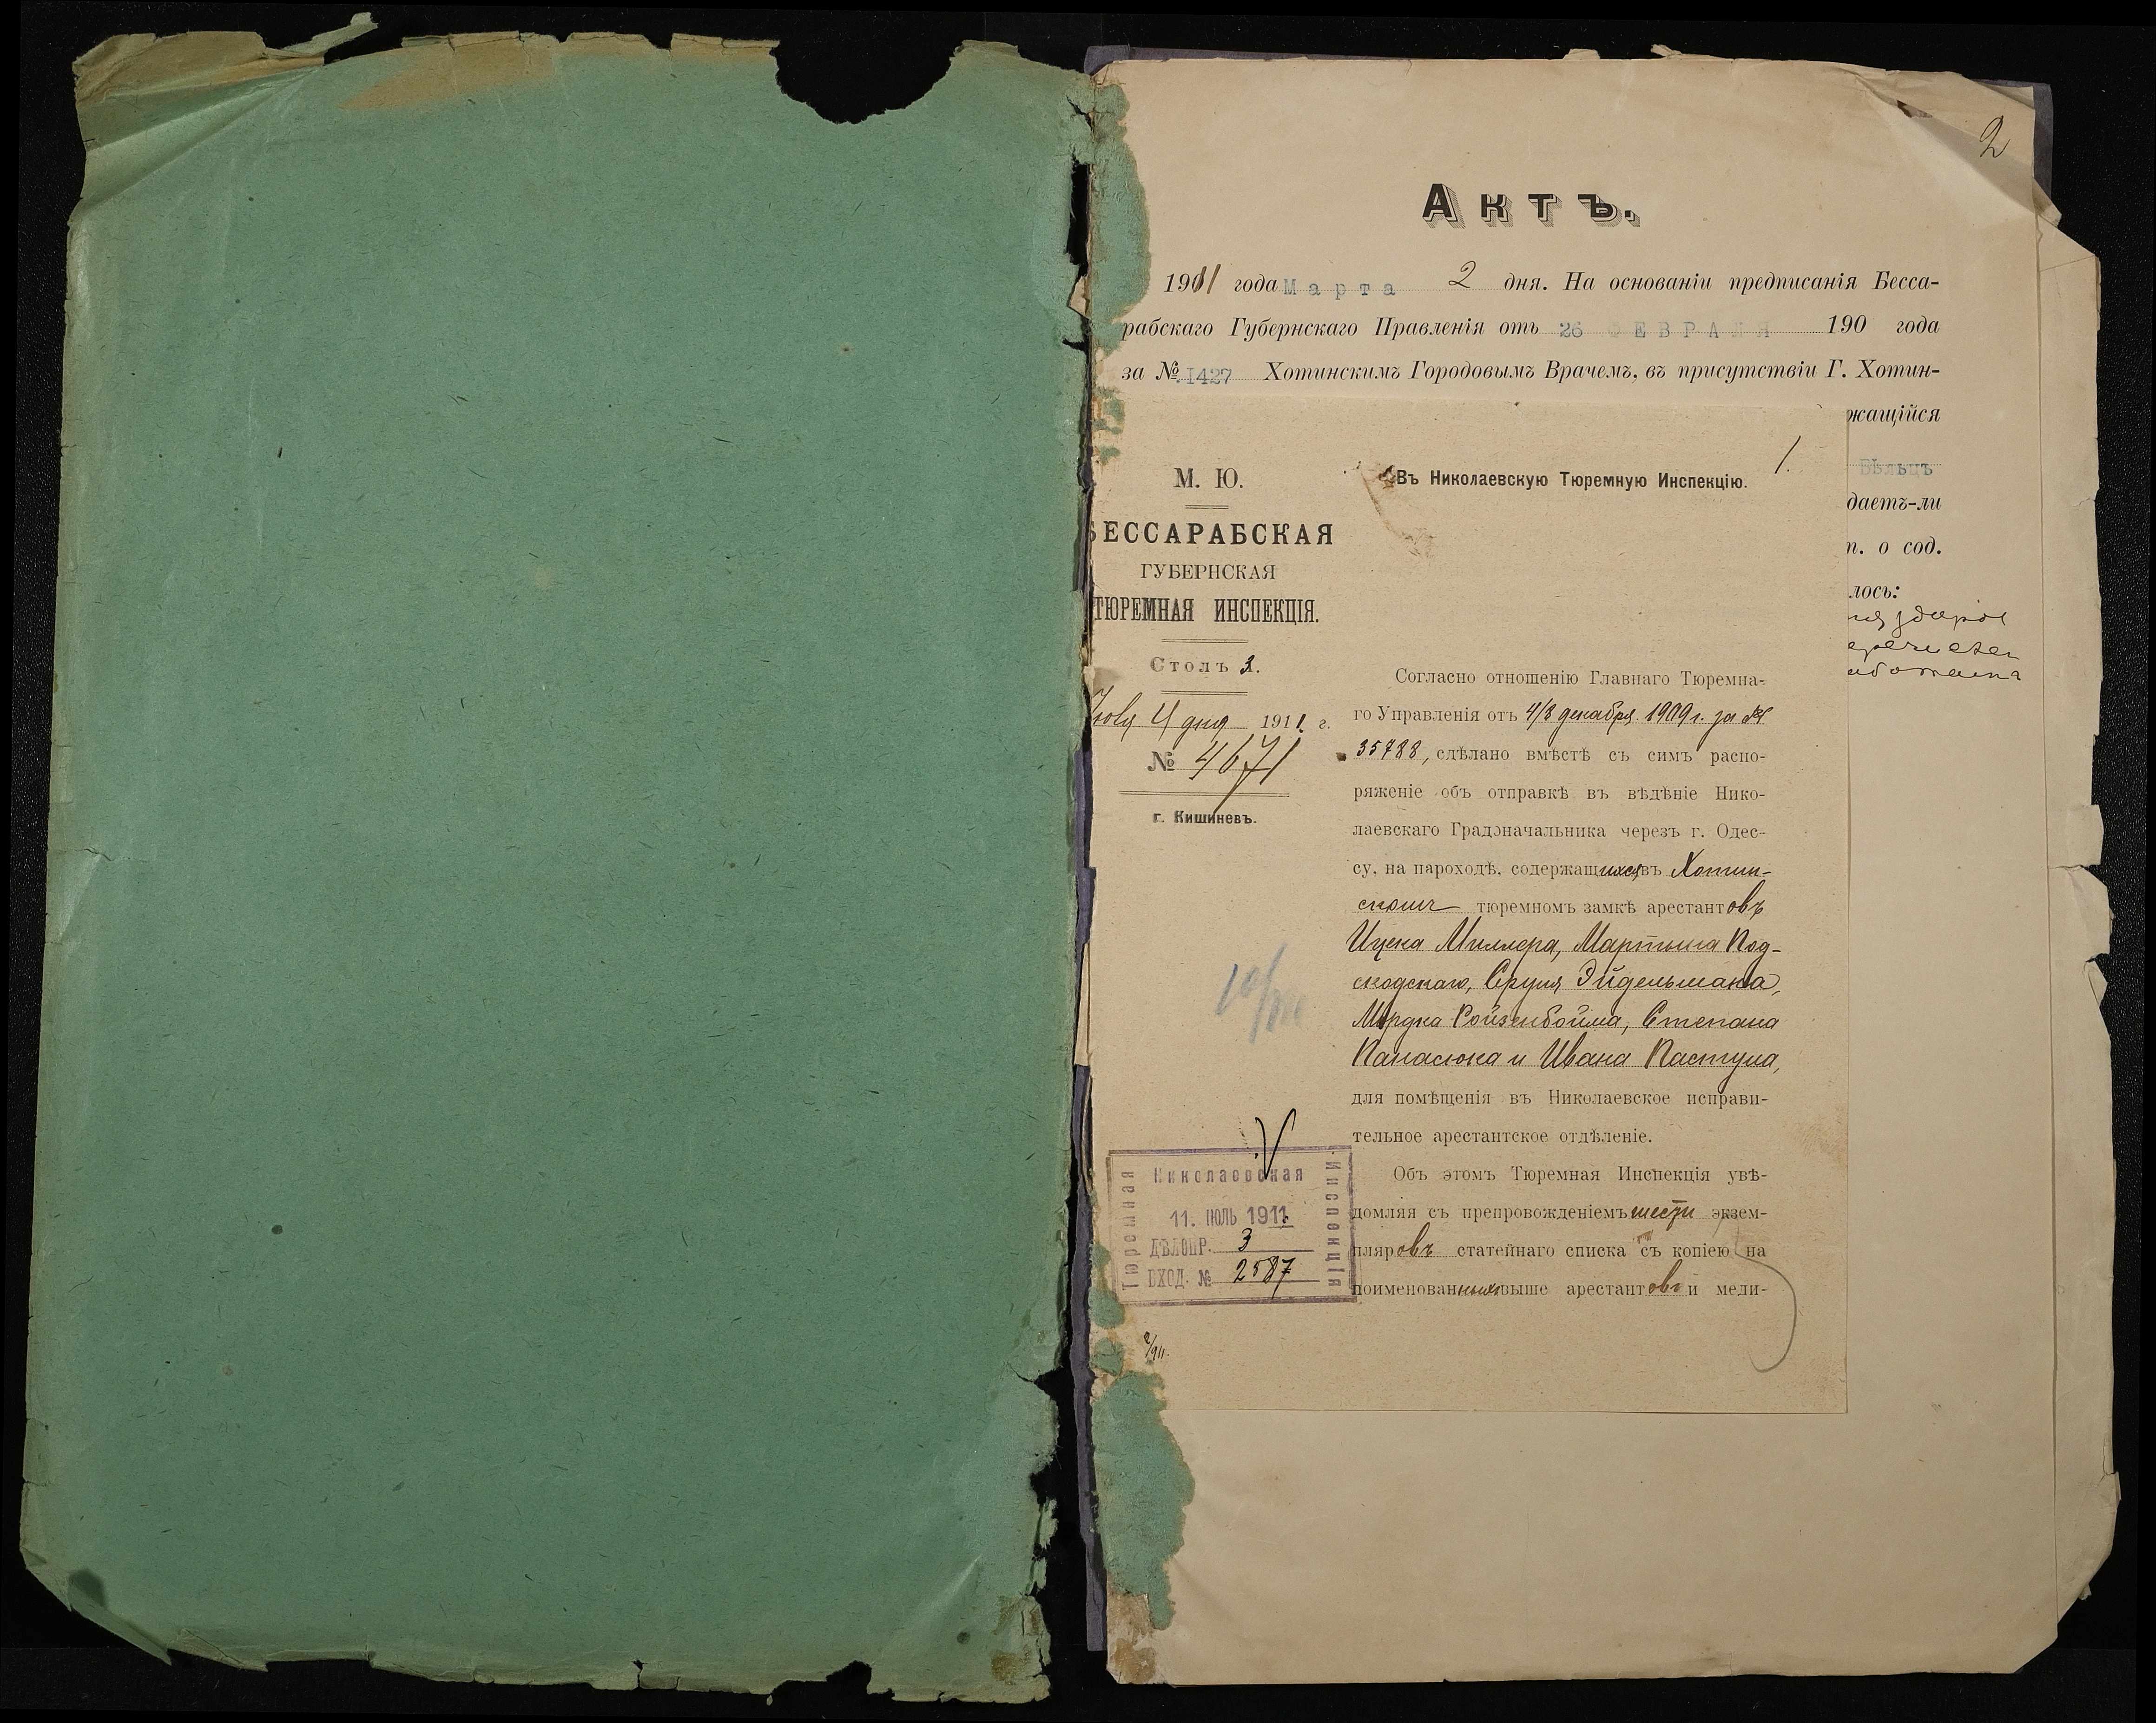 2
Актъ.
1911 года Марта 2 дня. На основаніи предписанія Бесса-
рабскаго Губернскаго Правленія отъ 26 ФЕВРАЛЯ 190 года
за № 1427 Хотинскимъ Городовымъ Врачемъ, въ присутствіи Г. Хотин-
жащійся
Бѣльцъ
даетъ-ли
п. о сод.
лось:
1.
М. Ю.
БЕССАРАБСКАЯ
ГУБЕРНСКАЯ
ТЮРЕМНАЯ ИНСПЕКЦІЯ.
Столъ 3.
4 дня 1911 г.
№ 4671
г. Кишиневъ.
Въ Николаевскую Тюремную Инспекцію.
Согласно отношенію Главнаго Тюремна-
го Управленія отъ 4/8 декабря 1909 г. за №
35788, сдѣлано вмѣстѣ съ симъ распо-
ряженіе объ отправкѣ въ вѣдѣніе Нико-
лаевскаго Градоначальника черезъ г. Одес-
су, на пароходѣ, содержащихся въ Хотин-
скомъ тюремномъ замкѣ арестантовъ
Ицека Миллера, Мартына Под-
скодскаго, Сруля Эйдельмана,
Мордка Ройзенбойма, Степана
Панасюка и Ивана Пастула,
для помѣщенія въ Николаевское исправи-
тельное арестантское отдѣленіе.
Объ этомъ Тюремная Инспекція увѣ-
домляя съ препровожденіемъ шести экзем-
пляровъ статейнаго списка съ копіею на
поименованныхъ выше арестантовъ и меди-
Николаевская
Тюремная
Инспекція
11. ІЮЛЬ 1911
ДѢЛОПР. 3
ВХОД. № 2587